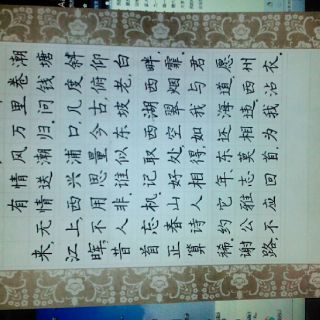 有情风万里卷潮
来,无情送潮归.问钱塘
江上,西兴浦口,几度斜
晖.不用思量今古,俯仰
昔人非.谁似东坡老,白
首忘机.记取西湖西畔,
正春山好处,空翠烟霏.
算诗人相得,如我与君
稀.约它年,东还海道,愿
谢公雅志莫相违.西州
路,不应回首,为我沾衣.